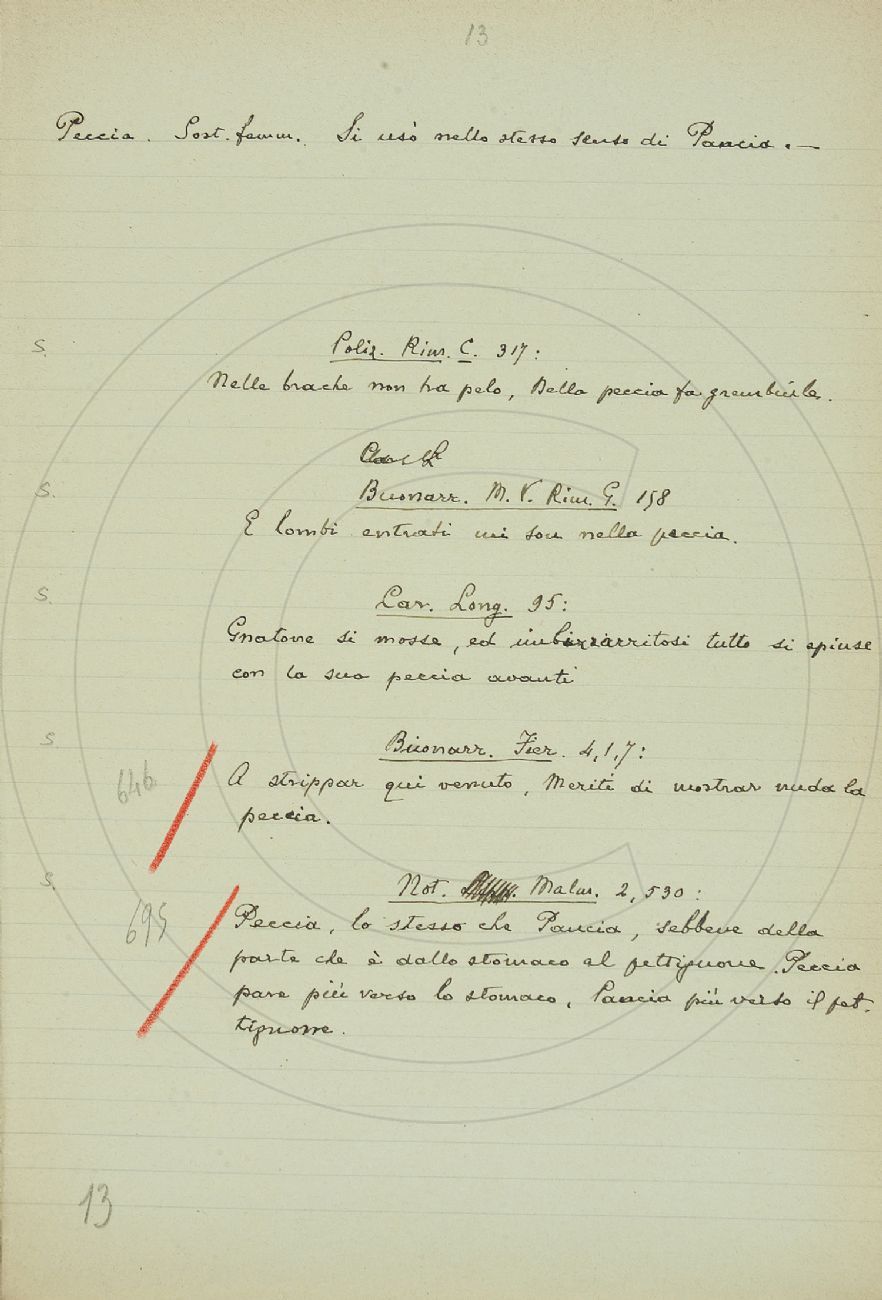 13
Peccia. Sost. femm. Si usò nello stesso senso di Pancia. —
S. Poliz. Rim. C. 317:
Nelle brache non ha pelo, Della peccia fa grembiule.
S. Buonarr. M. V. Rim. G. 158
E lombi entrati mi son nella peccia.
S. Car. Long. 95:
Gnatone si mosse, ed imbizzarritosi tutto si spinse
con la sua peccia avanti
S. Buonarr. Fier. 4,1,7:
646 A strippar qui venuto, Meriti di mostrar nuda la
peccia.
S. Not. Malm. 2, 530:
695 Peccia, lo stesso che Pancia, sebbene della
parte che è dallo stomaco al pettignone. Peccia
pare più verso lo stomaco, Pancia più verso il pet-
tignone.
13